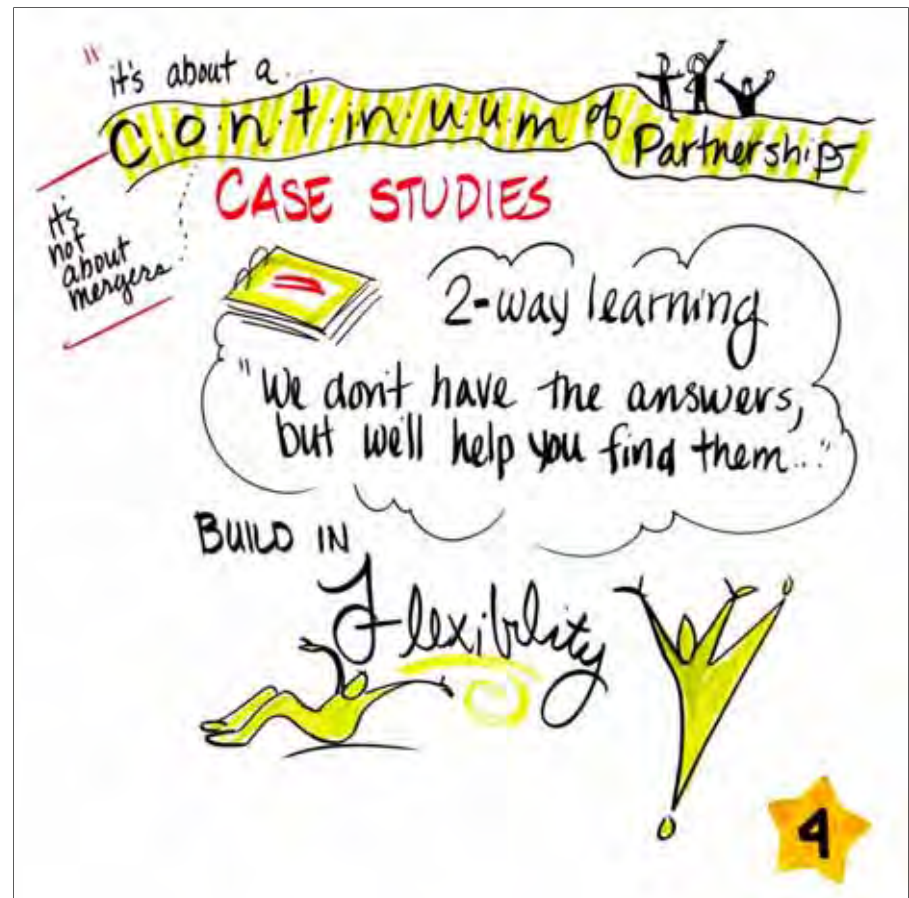 "it's about a...
C.o.n.t.in.u.u.m of
Partnerships
it's
not
about
mergers
CASE STUDIES
2-way learning
"We don't have the answers,
but we'll help you find them..."
BUILD IN
Flexiblity
4